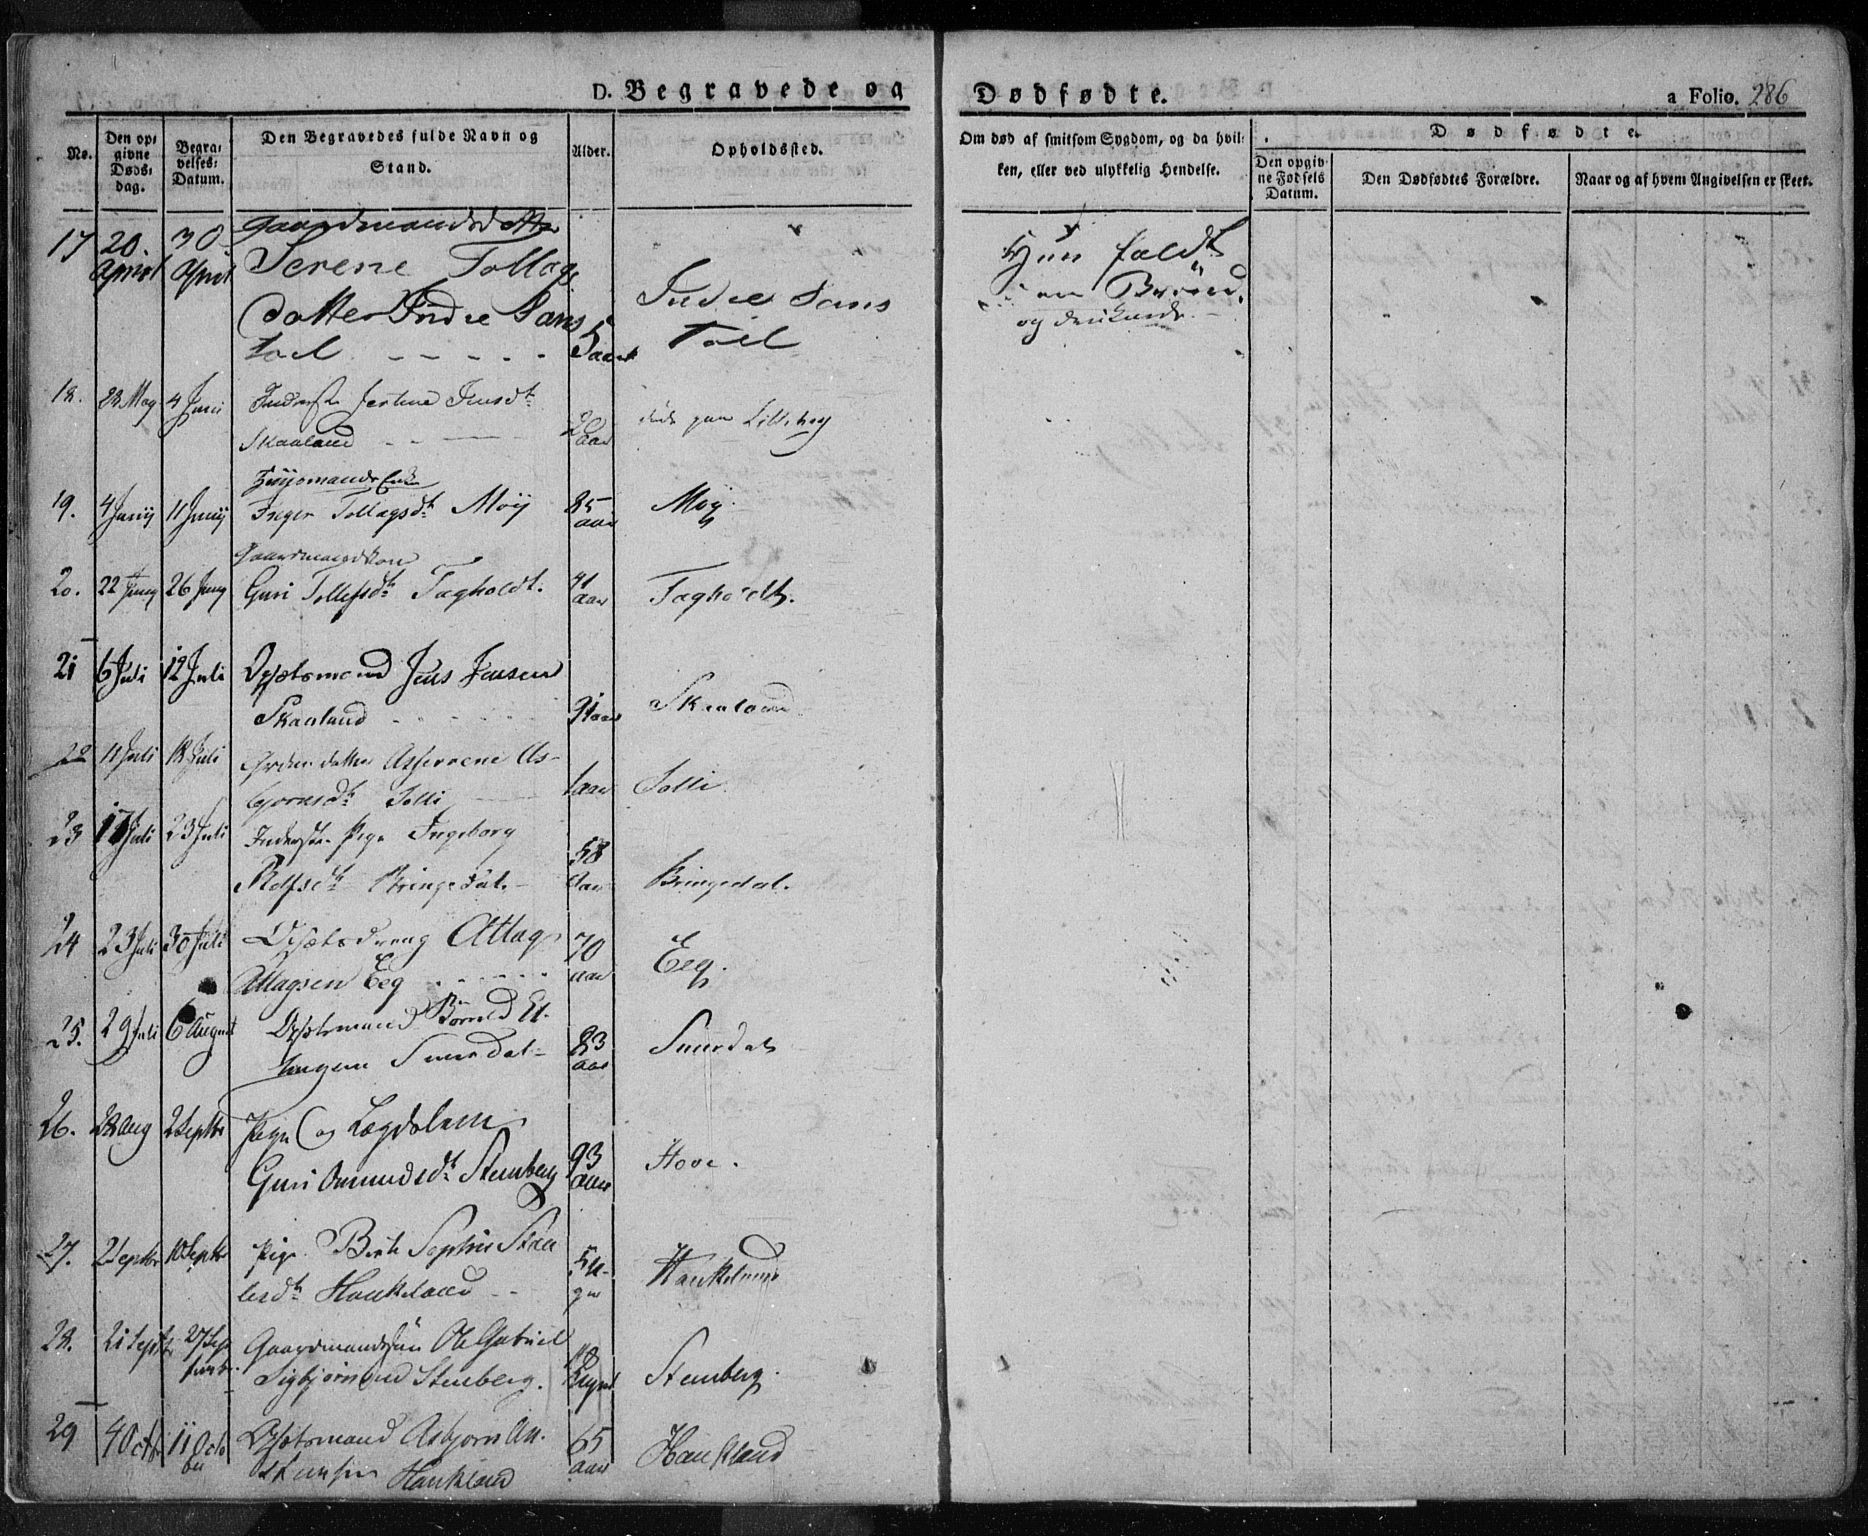 D. Begravede og Dødfødte. a Folio. 286
No. Den opgivne Dødsdag. Begravelses-Datum. Den Begravedes fulde Navn og Stand. Alder. Opholdssted. Om død af smitsom Sygdom, og da hvilken, eller ved ulykkelig Hendelse. Dødfødte.
Den opgivne Fødsels Datum. Den Dødfødtes Forældre. Naar og af hvem Angivelsen er skeet.
17 20. April 30 April Gaardmandsdatter
Serene Tollags
datter Indre Sans
toel 5 aar Indre Sans
Toel
Hun faldt
i en Brønd,
og druknede.
18. 28 May 4 Juni Jensdt.
Skaaland 2 aar døde paa
19. 4 Junij 11 Junij Enke
Inger Tollagsdt. Moij 85 aar Moy
20. 22 Juny 26 Juny Gaardmandskone
Guri Tollefsdt. Fagholdt. 41 aar Fagholdt.
21 6 Juli 12 Juli Opsætsmand Jens Jensen
Skaaland 91 aar Skaaland
22 11 Juli 18 Juli datter Asserene As-
bjornsdt. Solli 1 aar Solli
23 17 Juli 23 Juli Inderste Pige Ingeborg
Rolfsdt. Bringedal. 58 aar Bringedal.
24 23 Juli 30 Juli Attag
Attagsen Eeg 70 aar Eeg.
25. 29 Juli 6 August Opsætsmand
Smerdal 83 aar Smerdal
26. 28 Aug 2 Septbr Pige og Lægdslem
Guri Omundsdt. Stenberg 93 aar Hove.
27. 2 Septbr 10 Septbr Pige Berte Sophie Staa
lesdt. Haukeland 5 U-ger Haukeland
28. 21 Septbr 27 Septbr. Gaardmandssøn Ole Gabriel
Sigbjørnsen Stenberg. Stenberg.
29 4 Octbr 11 Octo
ber Opsætsmand Asbjorn An-
Haukland 65 aar Haukland